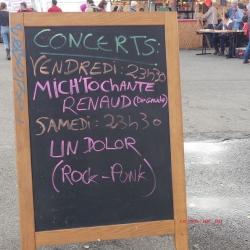 CONCERTS:
VENDREDI: 23h30
MICH'TO CHANTE
RENAUD
SAMEDI: 23h30
UN DOLOR
(ROCK-PUNK)